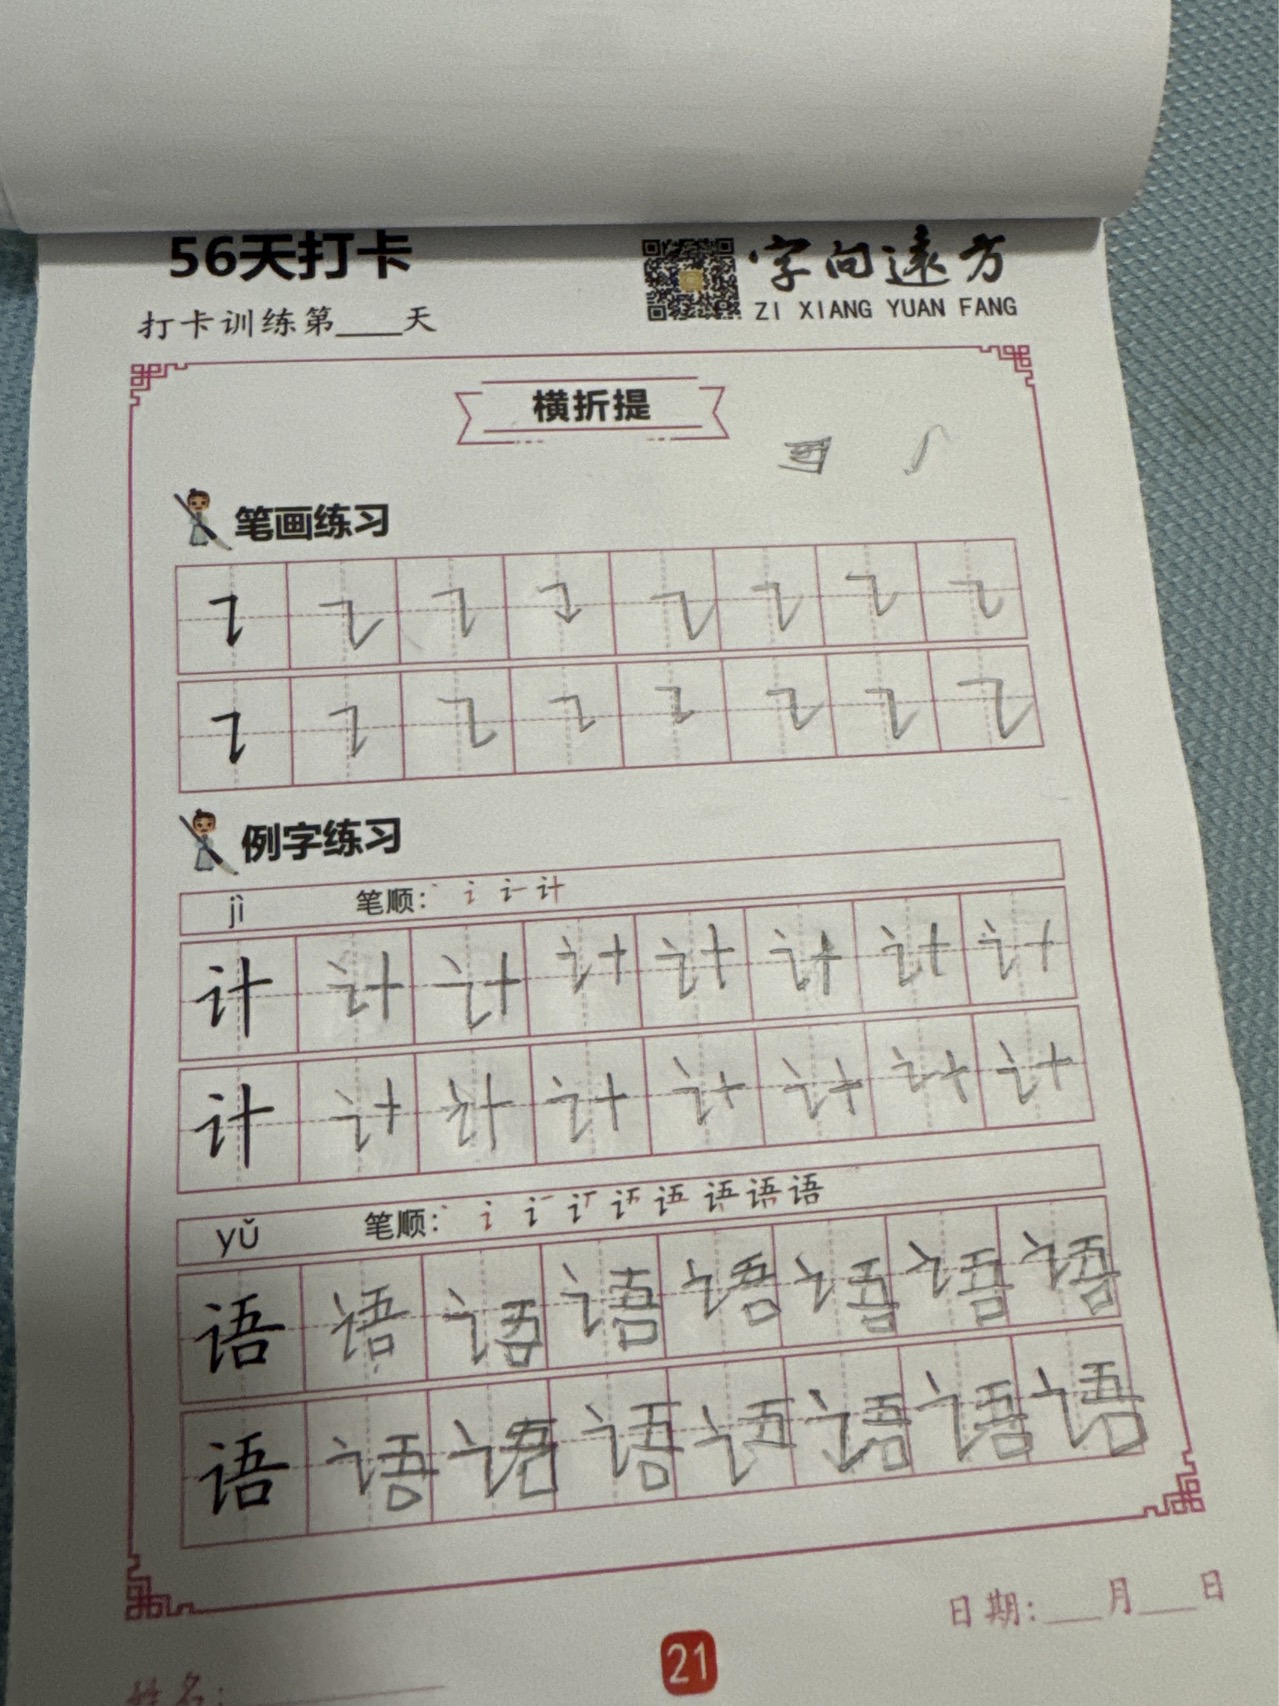 56天打卡
字向遠方
ZI XIANG YUAN FANG
打卡训练第____天
横折提
笔画练习
例字练习
jì 笔顺:
计 计 计 计 计 计 计 计
计 计 计 计 计 计 计 计
yǔ 笔顺: 语
语 语 语 语 语 语 语 语
语 语 语 语 语 语 语 语
日期:___月___日
21
姓名: